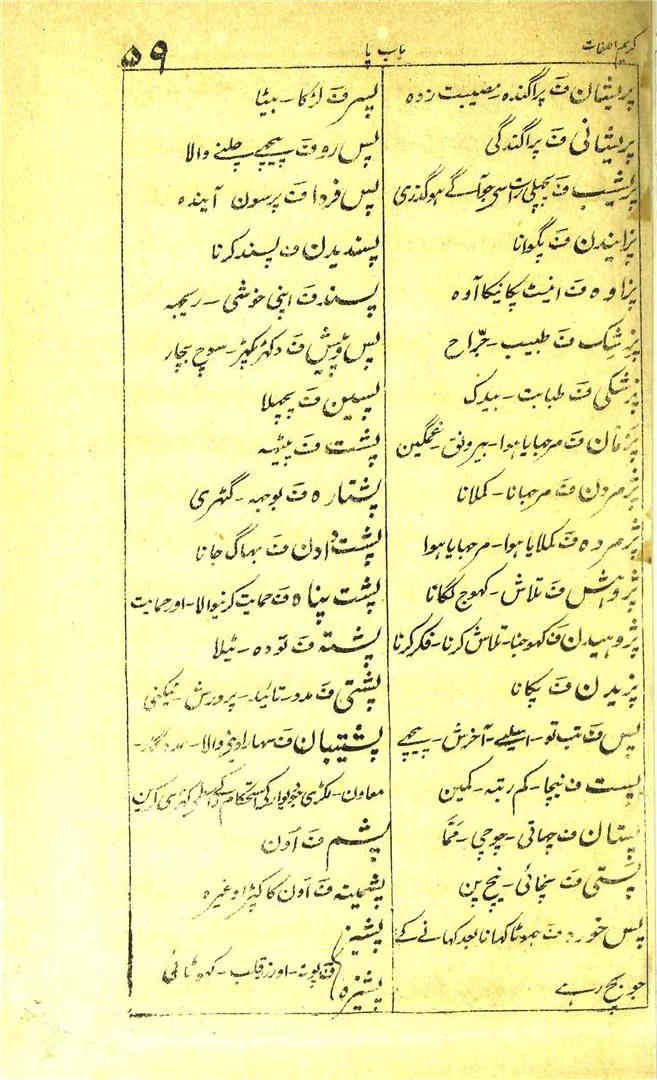 کریم اللغات
باب پا
۵۹
پریشان ف پراگندہ۔ مصیبت زدہ
پریشانی ف پراگندگی
پریشب ف پچھلی رات سی جو آگے ہو گذری
پزانیدن ف پکوانا
پزاوہ ف اینٹ پکانیکا آوہ
پزشک ف طبیب۔ جرّاح
پزشکی ف طبابت۔ بیدک
پژمان ف مرجہایا ہوا۔ بیرونق۔ غمگین
پژمردن ف مرجہانا۔ کملانا
پژمردہ ف کملایا ہوا۔ مرجہایا ہوا
پژوہش ف تلاش۔ کہوج لگانا
پژوہیدن ف کہوجنا۔ تلاش کرنا۔ فکر کرنا
پزیدن ف پکانا
پس ف تب تو۔ اسلیے۔ آخرش۔ پیچہے
پست ف نیچا۔ کم رتبہ۔ کمین
پستان ف چہاتی۔ چوچی۔
پستی ف نچائی۔ نیچ پن
پس خوردہ ف جہوٹا کہانا بعد کہانے کے
جو بچ رہے
پسر ف لڑکا۔ بیٹا
پس رو ف پیچہے چلنے والا
پس فردا ف پرسون آیندہ
پسندیدن ف پسند کرنا
پسند ف اپنی خوشی۔ ریجہہ
پس و پیش ف دکہڑ پکہڑ۔ سوچ بچار
پسین ف پچہلا
پشت ف پیٹہہ
پشتارہ ف بوجہہ۔ گٹہری
پشت دادن ف بہاگ جانا
پشت پناہ ف حمایت کرنیوالا۔ اور حمایت
پشتہ ف تودہ۔ ٹیلا
پشتی ف مدد۔ تائید۔ پرورش۔ نیکی
پشتیبان ف سہارا دینے والا۔ مددگار۔
معاون۔ لکڑی جو دیوار کی استحکام کے واسطے کہڑی کرین
پشم ف اُون
پشمینہ ف اُون کا کپڑا وغیرہ
پشیز
پشیزہ
ف پونہ۔ اور زر قلب۔ کہوٹائی